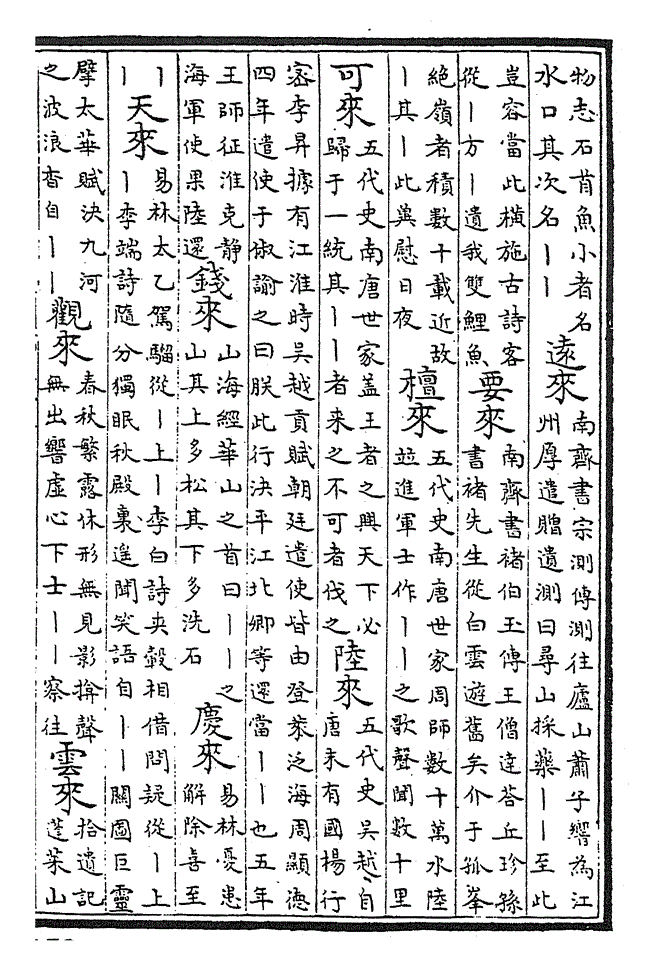 物志石首魚小者名
水口其次名｜｜
遠來
南齊書宗測傳測往廬山蕭子響為江
州厚遣贈遺測曰尋山採藥｜｜至此
豈容當此橫施古詩客
從｜方｜遺我雙鯉魚
要來
南齊書褚伯玉傳王僧達荅丘珍孫
書褚先生從白雲遊舊矣介于孤峯
絶嶺者積數十載近故
｜其｜此兾慰日夜
檀來
五代史南唐世家周師數十萬水陸
竝進軍士作｜｜之歌聲聞數十里
可來
五代史南唐世家盖王者之興天下必
歸于一統其｜｜者来之不可者伐之
陸來
五代史吳越自
唐末有國楊行
宻李昇據有江淮時吳越貢賦朝廷遣使皆由登萊泛海周顯德
四年遣使于俶諭之曰朕此行決平江北卿等還當｜｜也五年
王師征淮克静
海軍使果陸還
錢來
山海經華山之首曰｜｜之
山其上多松其下多洗石
慶來
易林憂患
解除喜至
｜
｜
天來
易林太乙駕騮從｜上｜李白詩夾轂相借問疑從｜上
｜李端詩隨分獨眠秋殿裏遥聞笑語自｜｜關圖巨靈
擘太華賦決九河
之波浪杳自｜｜
觀來
春秋繁露休形無見影揜聲
無出響虛心下士｜｜察往
雲來
拾遺記
蓬萊山